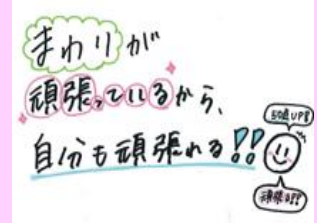 まわりが
頑張っているから、
自分も頑張れる!!
50点UP!!
頑張る!!